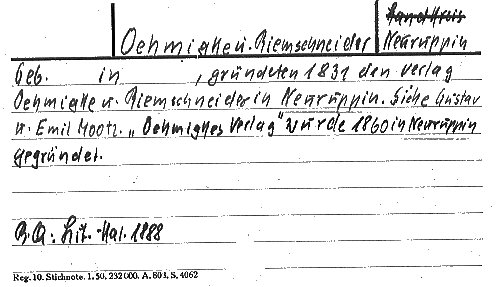 Landkreis
Oehmigke u. Riemschneider Neuruppin
Geb. in , gründeten 1831 den Verlag
Oehmigke u. Riemschneider in Neuruppin. Siehe Gustav
u. Emil Mootz. „Oehmigkes Verlag" wurde 1860 in Neuruppin
gegründet.
B.Q.: Lit. Kal. 1888
Reg. 10. Stichnote. 1. 50. 232 000. A. 803. S. 4062